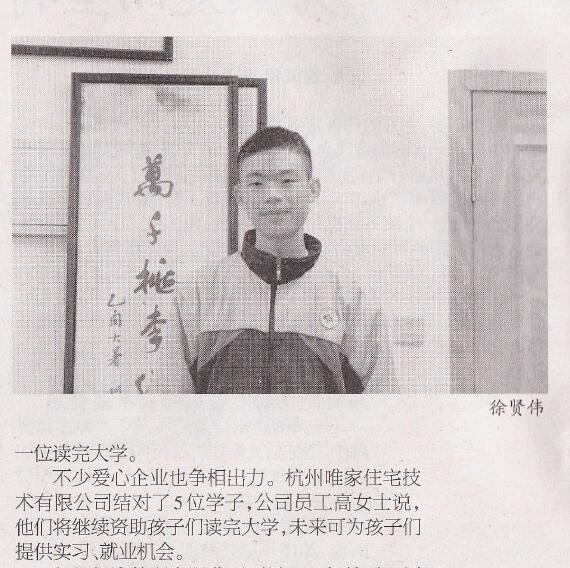 萬千桃李
徐贤伟
一位读完大学。
不少爱心企业也争相出力。杭州唯家住宅技
术有限公司结对了5位学子,公司员工高女士说,
他们将继续资助孩子们读完大学,未来可为孩子们
提供实习、就业机会。